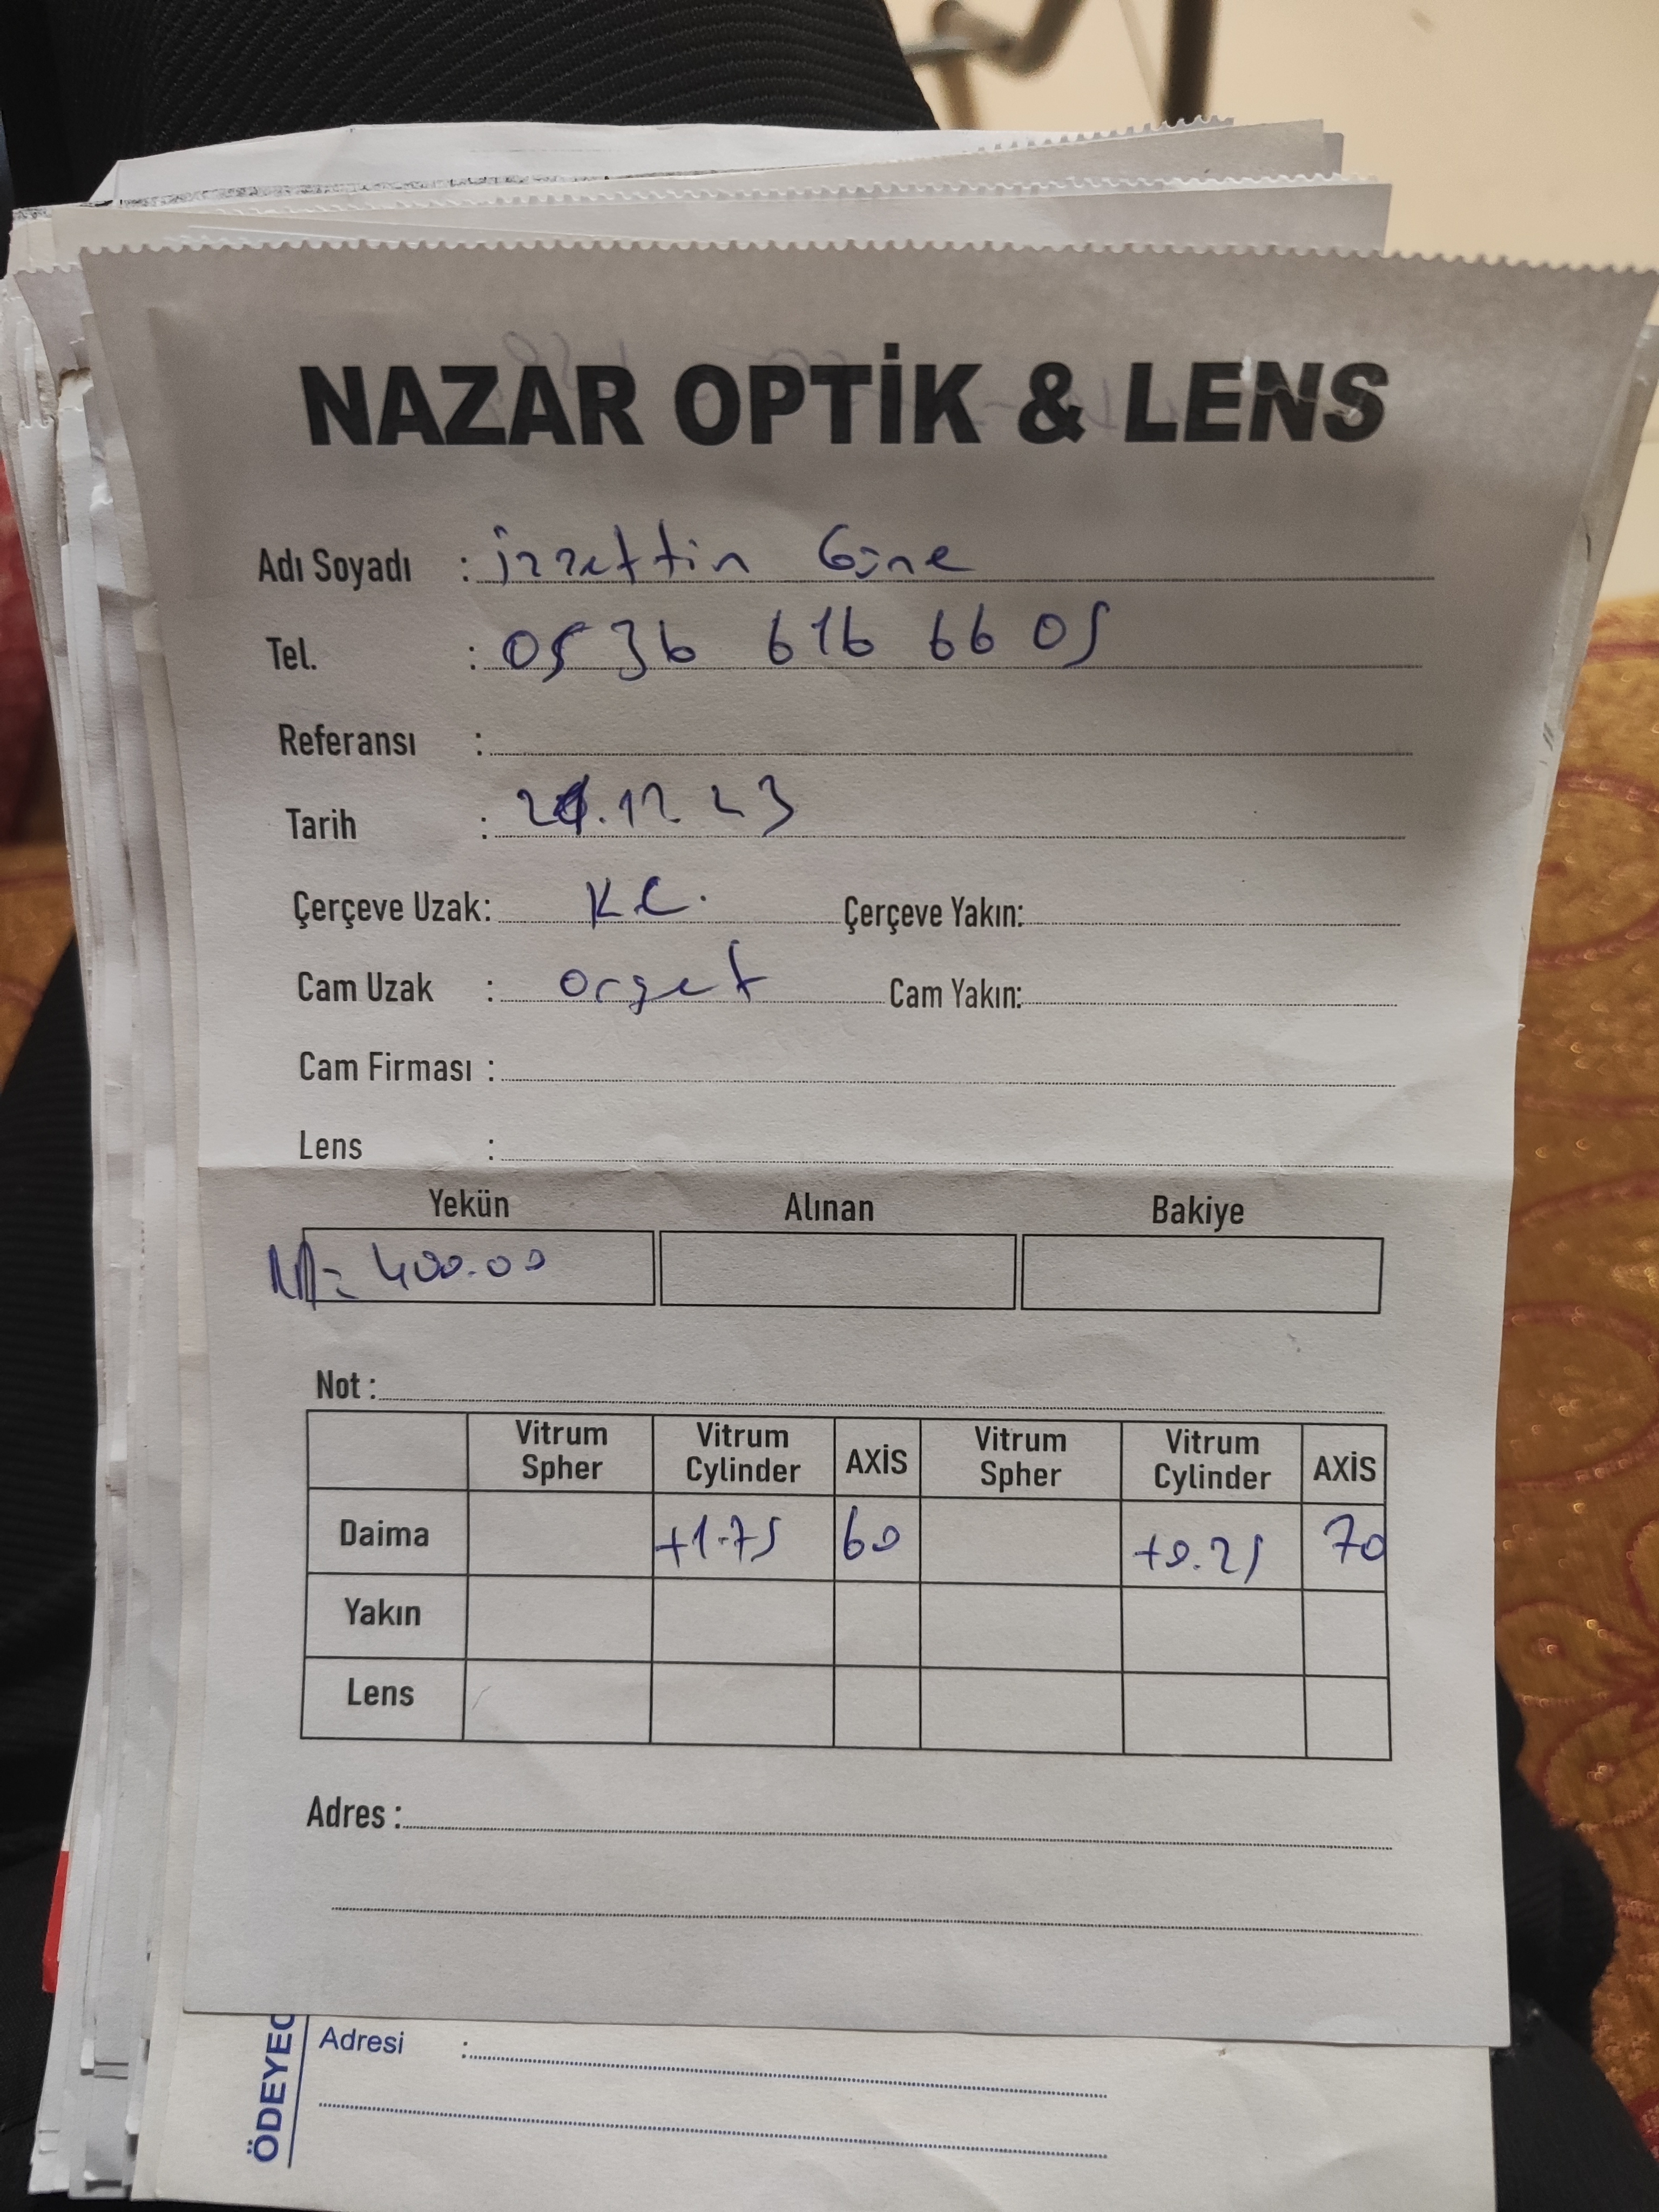 NAZAR OPTİK & LENS
Adı Soyadı : izzettin Güne
Tel. : 0536 616 66 05
Referansı :
Tarih : 21.12 23
Çerçeve Uzak: K.C. Çerçeve Yakın:
Cam Uzak : orget Cam Yakın:
Cam Firması :
Lens :
Yekün Alınan Bakiye
400.00
Not :
Vitrum Spher Vitrum Cylinder AXİS Vitrum Spher Vitrum Cylinder AXİS
Daima +1.75 60 +0.25 70
Yakın
Lens
Adres :
ÖDEYEC
Adresi :